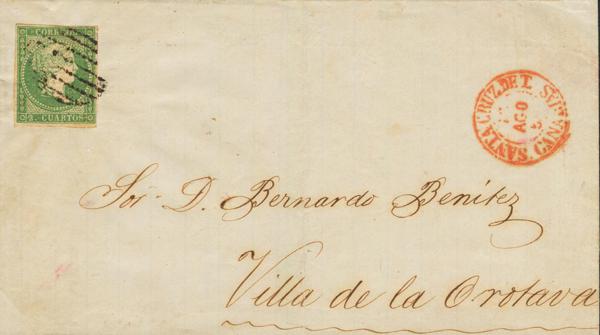 CORREOS
2. CUARTOS
SANTA CRUZ DE T.
AGO
CANA
Sor. D. Bernardo Benítez
Villa de la Orotava